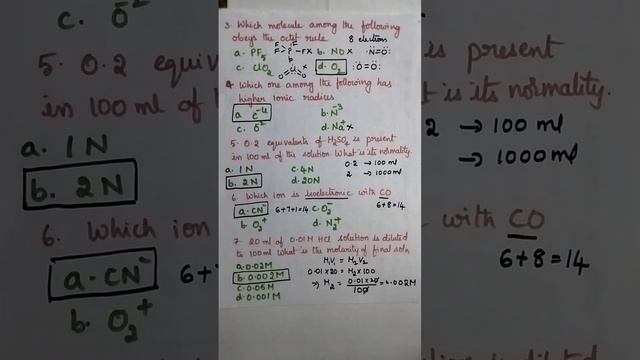 3. Which molecule among the following
obeys the octet rule 8 electron
a. PF5 F F P F -FX b. NO X ·N̈=Ö:
c. ClO2 O Cl O X d. O2 :Ö=Ö:
4. Which one among the following has
higher ionic radius
a. C-4 b. N-3
c. O-2 d. Na+ x
5. 0.2 equivalents of H2SO4 is present
in 100 ml of the solution. What is its normality.
a. 1N c. 4N 0.2 → 100 ml
b. 2N d. 20N 2 → 1000 ml
6. Which ion is isoelectronic with CO
a. CN- 6+7+1=14 c. O2- 6+8=14
b. O2+ d. N2+
7. 20 ml of 0.01M HCl solution is diluted
to 100ml What is the molarity of final soln
a. 0.02M M1V1 = M2V2
b. 0.002M 0.01×20 = M2×100
c. 0.05M ⇒ M2 = 0.01×20/100 = 0.002M
d. 0.001M
c. O-2
5. 0.2 equiv
in 100 ml of
a. 1N
b. 2N
6. Which ion
a. CN- 6+7
b. O2+
is present
What is its normality.
2 → 100 ml
→ 1000 ml
with CO
6+8=14